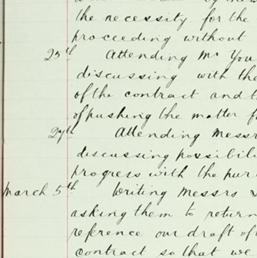 the necessity for the
proceeding without
25th Attending Mr You
discussing with the
of the contract and t
of pushing the matter f
29th Attending Messr
discussing possibili
progress with the pur
March 5th Writing Messrs
asking them to return
reference our draft of
contract so that we